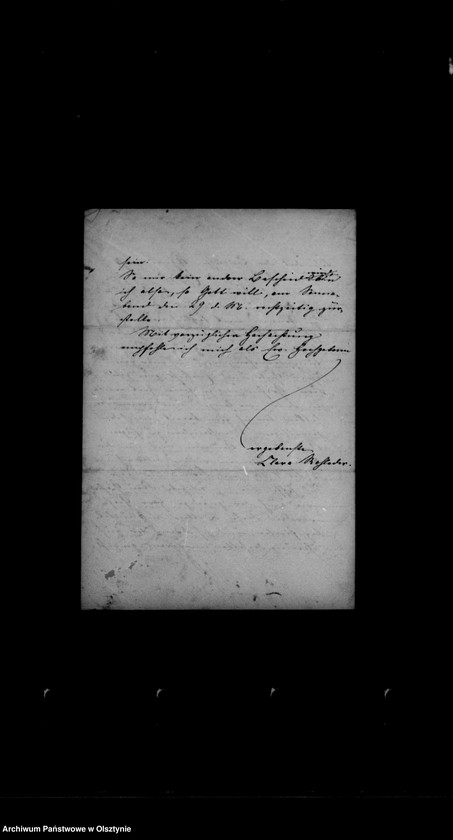 sein.
So mir kein andrer Bescheid wird
ich also, so Gott will, am Sonna-
bend den 29 d. M. rechtzeitig zur
stelle.
Mit vorzüglicher Hochachtung
empfehle ich mich als Ew. Hochgeboren
ergebenste
Clara
Archiwum Państwowe w Olsztynie